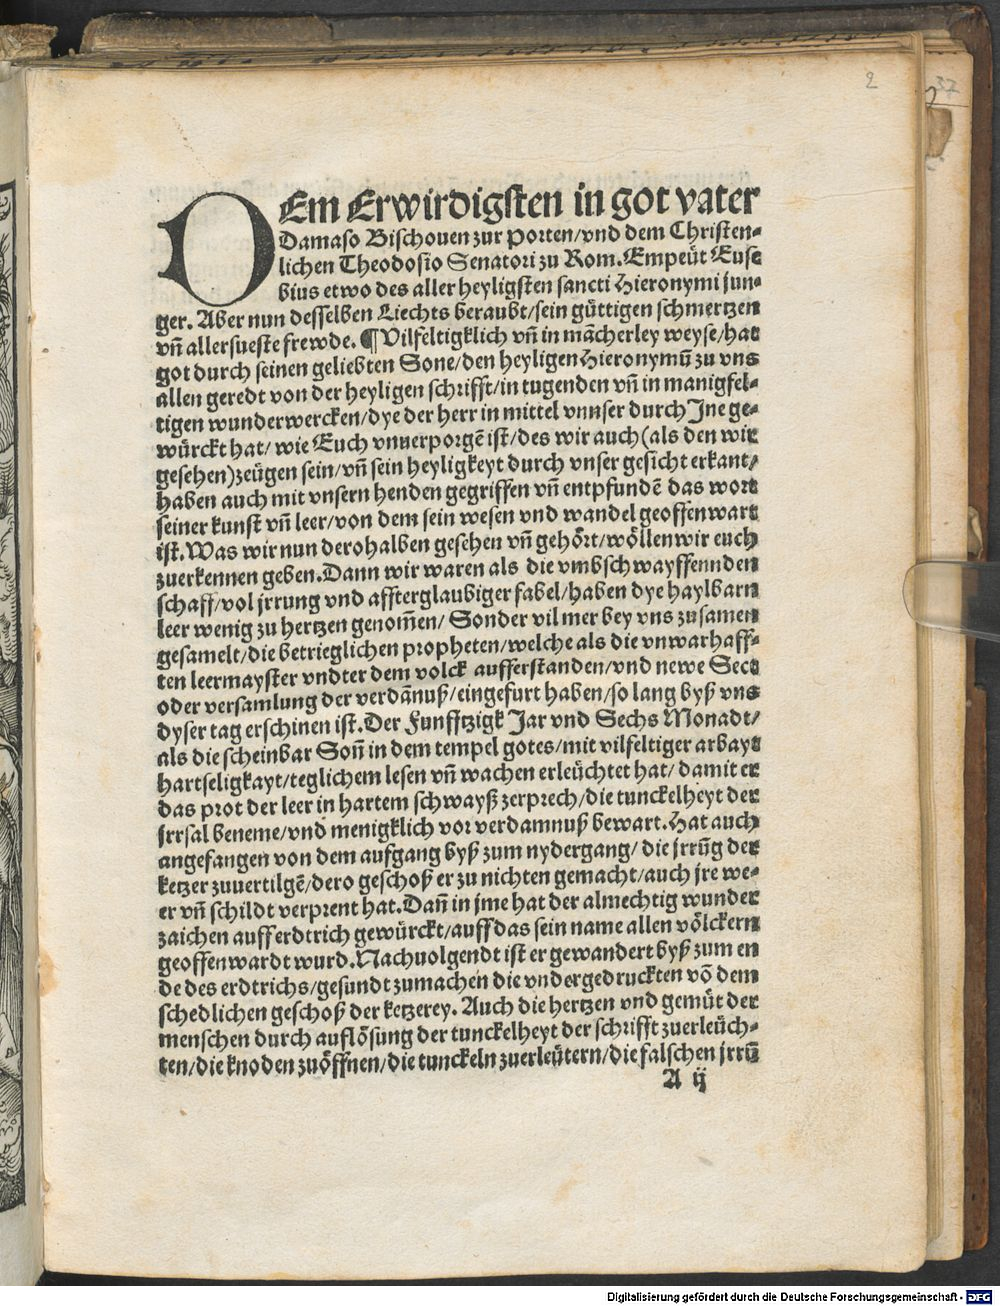 2
37
DEm Erwirdigsten in got vater
Damaso Bischouen zur Porten/vnd dem Christen-
lichen Theodosio Senatori zu Rom. Empeüt Euse
bius etwo des aller heyligsten sancti Hieronymi jun-
ger. Aber nun desselben Liechts beraubt/sein güttigen schmertzen
vn̄ allersueste frewde. ¶Vilfeltigklich vn̄ in mācherley weyse/hat
got durch seinen geliebten Sone/den heyligen Hieronymū zu vns
allen geredt von der heyligen schrifft/in tugenden vn̄ in manigfel-
tigen wunderwercken/dye der herr in mittel vnnser durch Jne ge-
würckt hat/ wie Euch vnuerporgē ist/des wir auch (als den wir
gesehen) zeügen sein/vn̄ sein heyligkeyt durch vnser gesicht erkant/
haben auch mit vnsern henden gegriffen vn̄ entpfundē das wort
seiner kunst vn̄ leer/von dem sein wesen vnd wandel geoffenwart
ist. Was wir nun derohalben gesehen vn̄ gehört/wöllen wir euch
zuerkennen geben. Dann wir waren als die vmbschwayffennden
schaff/vol jrrung vnd affterglaubiger fabel/haben dye haylbarn
leer wenig zu hertzen genom̄en/ Sonder vil mer bey vns zusamen
gesamelt/die betrieglichen propheten/welche als die vnwarhaff-
ten leermayster vndter dem volck aufferstanden/vnd newe Sect
oder versamlung der verdānuß/eingefurt haben/so lang byß vns
dyser tag erschinen ist. Der Funfftzigk Jar vnd Sechs Monadt/
als die scheinbar Son̄ in dem tempel gotes/mit vilfeltiger arbayt
hartseligkayt/teglichem lesen vn̄ wachen erleüchtet hat/ damit er
das prot der leer in hartem schwayß zerprech/die tunckelheyt der
jrrsal beneme/vnd menigklich vor verdamnuß bewart. Hat auch
angefangen von dem aufgang byß zum nydergang/ die jrrūg der
ketzer zuuertilgē/dero geschoß er zu nichten gemacht/auch jre we-
er vn̄ schildt verprent hat. Dan̄ in jme hat der almechtig wunder
zaichen auff erdtrich gewürckt/auff das sein name allen völckern
geoffenwardt wurd. Nachuolgendt ist er gewandert byß zum en
de des erdtrichs/gesundt zumachen die vndergedruckten vō dem
schedlichen geschoß der ketzerey. Auch die hertzen vnd gemüt der
menschen durch auflösung der tunckelheyt der schrifft zuerleüch-
ten/die knoden zuöffnen/die tunckeln zuerleütern/die falschen jrrū
A ij
Digitalisierung gefördert durch die Deutsche Forschungsgemeinschaft - DFG